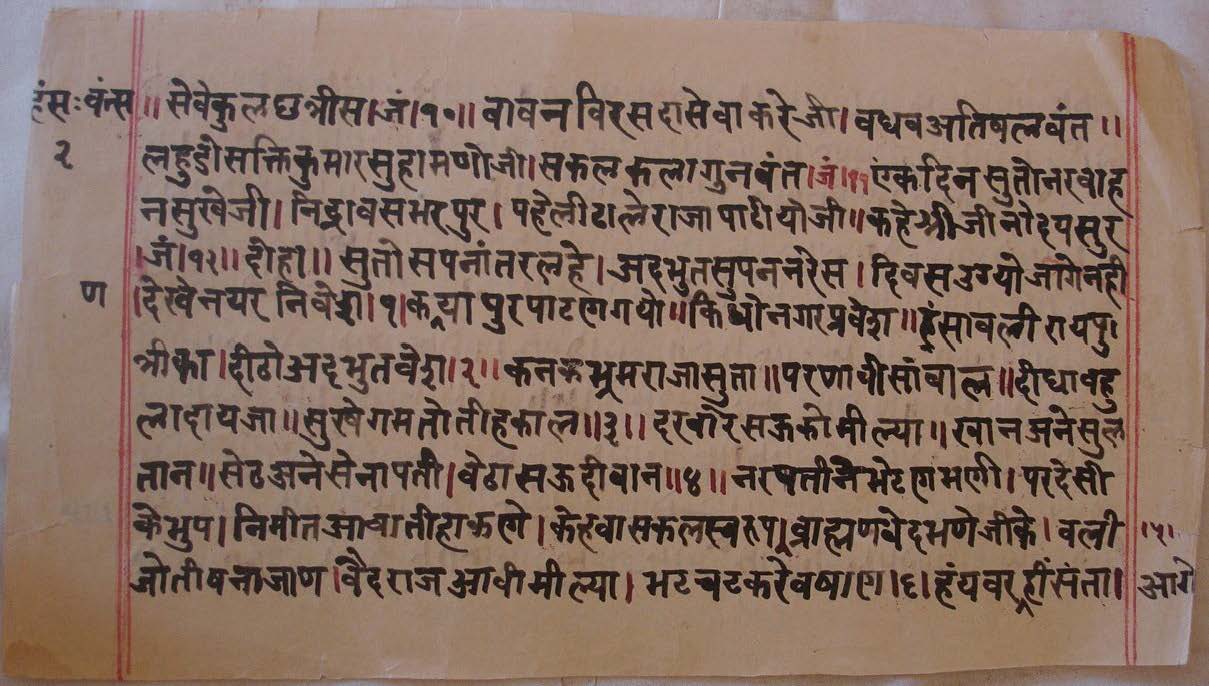 हंसः वंत्स ॥ सेवे कुल छत्रीस । जं । १० ॥ बावन विर सदा सेवा करे जी । बधव अतिबलवंत ॥
२ लहुडो सक्तिकुमार सुहामणो जी । सकल कला गुनवंत । जं । ११ एक दिन सुतो नरवाह
न सुखे जी । निद्रावस भरपुर । पहेली ढाले राजा पाटीयो जी ॥ कहे श्री जीनोदयसुर
। जं । १२ ॥ दोहा ॥ सुतो सपनांतर लहे । अदभुत सुपन नरेस । दिवस उग्यो जागे नही
ण । देखे नयर निवेश । १ । कन्यापुर पाटण गयो ॥ किधो नगर प्रवेश ॥ हंसावली रायपु
त्रीका । दीठो अदभुत वेश । २ ॥ कनकभ्रम राजा सुता ॥ परणावी सांबाल ॥ दीधा बहु
ला दायजा ॥ सुखे गमतो तीहकाल ॥ ३ ॥ दरबारे सऊको मील्या ॥ खान अने सुल
तान ॥ सेठ अने सेनापती । बेठा सऊ दीवान ॥ ४ ॥ नरपतीने भेटण भणी । परदेसी
के भुप । निमीत आवा तीहा कणे । केहवा सकल स्वरुप । ब्राह्मण वेद भणे जीके । वली । ५ ।
जोतीषना जाण । वैदराज आवी मील्या । भट चट करे वषाण । ६ । हंयवर हीसंता । आगे